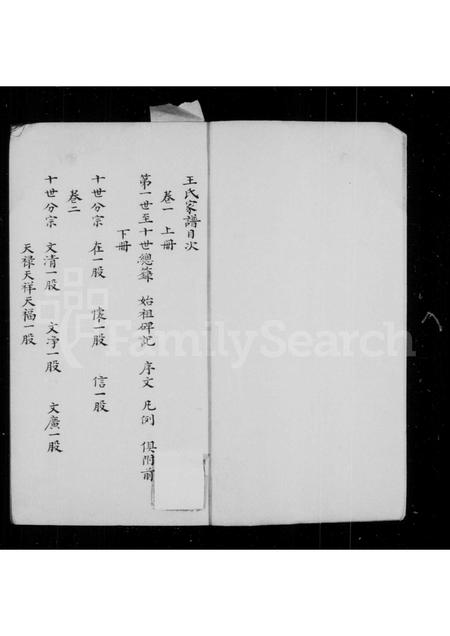 王氏家譜目次
卷一 上冊
第一世至十世總錄 始祖碑記 序文 凡例 俱附前
下冊
十世分宗 在一股 懷一股 信一股
卷二
十世分宗 文清一股 文淨一股 文廣一股
天祿天祥天福一股
FamilySearch